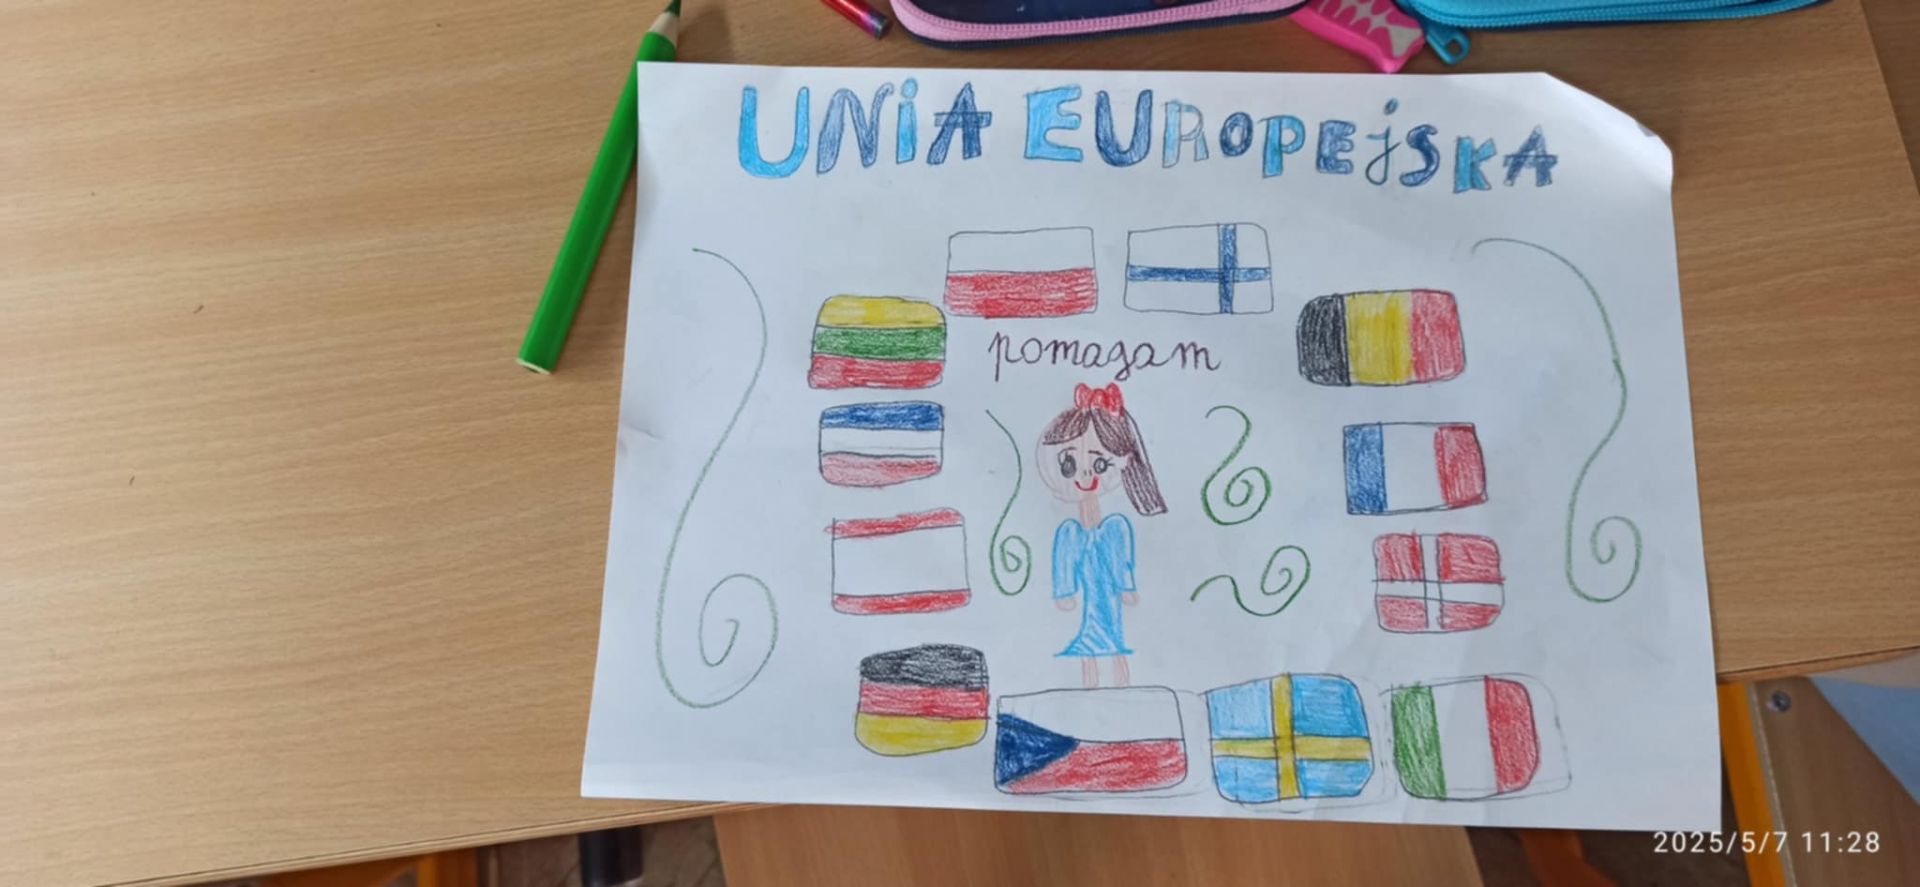 UNiA EUROPEjSKA
pomagam
2025/5/7 11:28